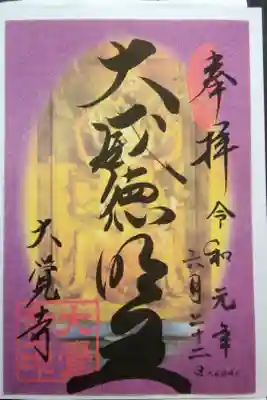 奉拝
令和元年
六月二十二日
大威徳明王
大覚寺